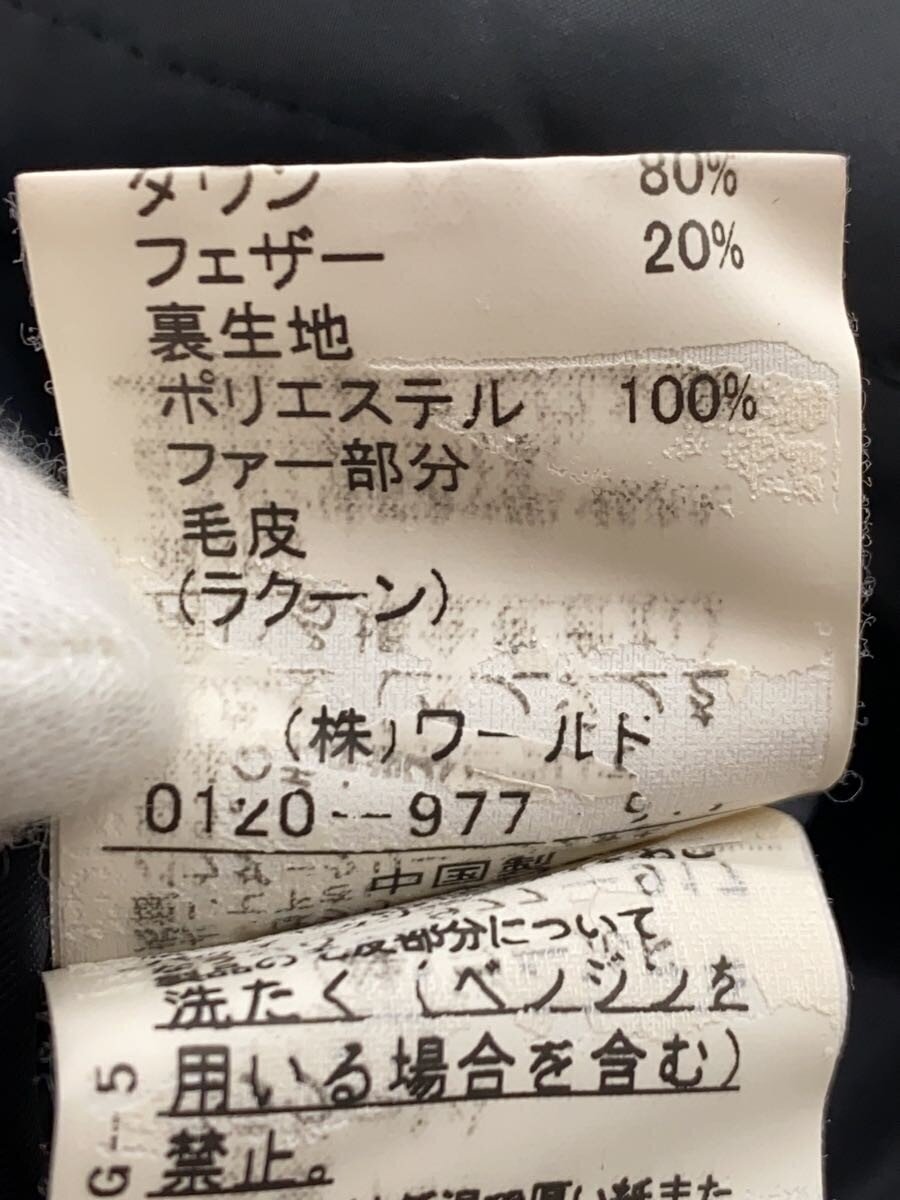 ダウン 80%
フェザー 20%
裏生地
ポリエステル 100%
ファー部分
毛皮
(ラクーン)
(株)ワールド
0120--977
中国製
部分について
洗たく(ベンジンを
用いる場合を含む)
禁止。
G--5